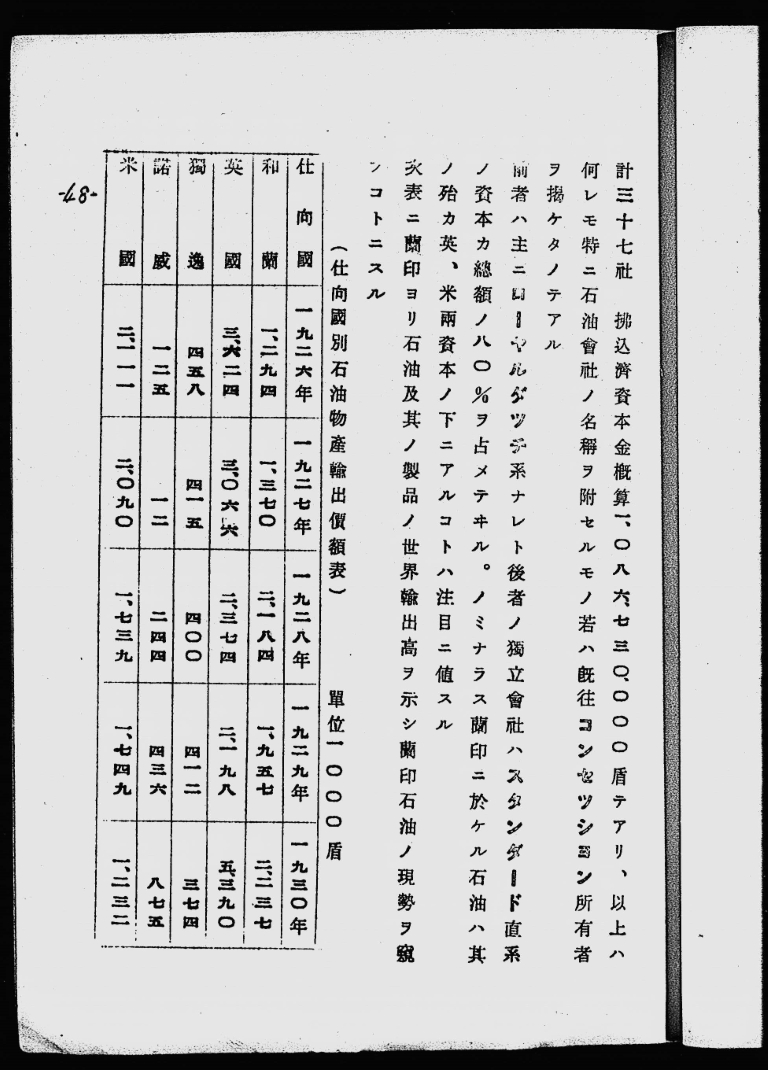 計三十七社　拂込濟資本金槪算一、〇八六、七三〇、〇〇〇盾テアリ、以上ハ
何レモ特ニ石油會社ノ名稱ヲ附セルモノ若ハ旣往コンセツシヨン所有者
ヲ揭ケタノテアル
前者ハ主ニローヤルダツチ系ナレト後者ノ獨立會社ハスタンダード直系
ノ資本カ總額ノ八〇%ヲ占メテヰル。ノミナラス蘭印ニ於ケル石油ハ其
ノ殆カ英、米兩資本ノ下ニアルコトハ注目ニ値スル
次表ニ蘭印ヨリ石油及其ノ製品ノ世界輸出高ヲ示シ蘭印石油ノ現勢ヲ窺
フコトニスル
（仕向國別石油物產輸出價額表）　單位一〇〇〇盾
仕向國　一九二六年　一九二七年　一九二八年　一九二九年　一九三〇年
和蘭　一、二九四　一、三七〇　二、一八四　一、九五七　二、二三七
英國　三、六二四　三、〇六六　二、三七四　二、一九八　五、三九〇
獨逸　四五八　四一五　四〇〇　四一二　三七四
諾威　一二五　一二　二四四　四三六　八七五
米國　二、一一一　二、〇九〇　一、七三九　一、七四九　一、二三二
-87-